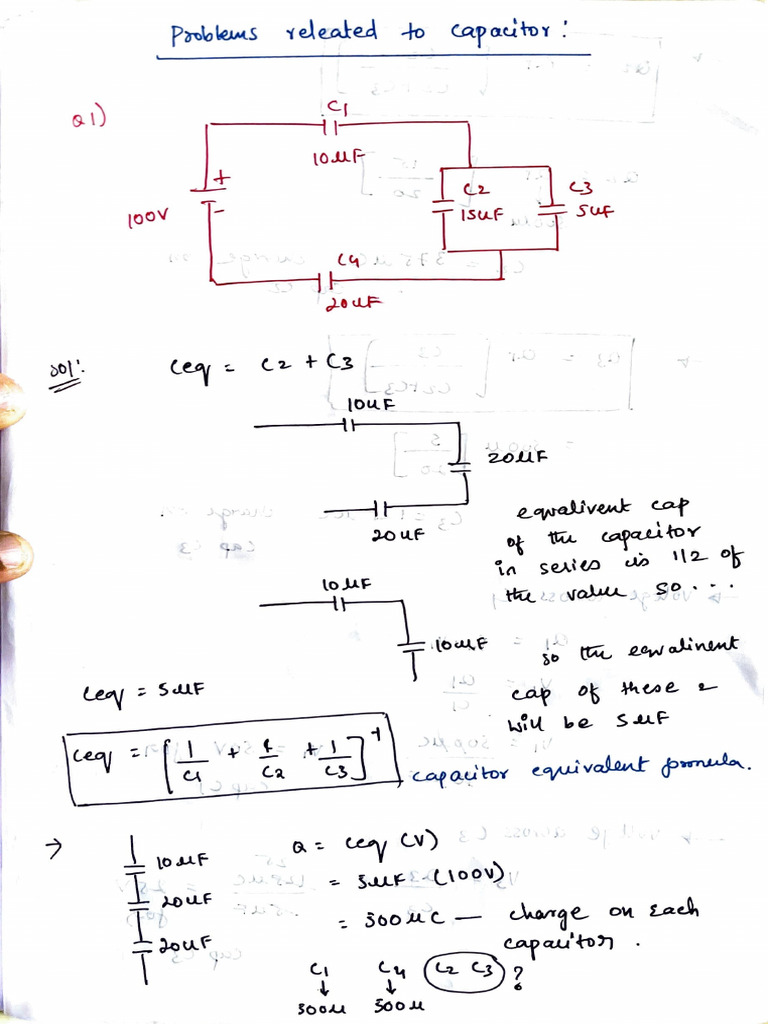 Problems releated to capacitor:
Q1)
C1
10µF
+
-
100V
C2
15µF
C3
5µF
C4
20µF
Sol:
Ceq = C2 + C3
10µF
20µF
20µF
eqvalivent cap
of the capacitor
in series is 1/2 of
the value so...
10µF
10µF
so the eqvalinent
cap of these 2
will be 5µF
Ceq = 5µF
Ceq = [1/C1 + 1/C2 + 1/C3]^-1
capacitor equivalent fromula.
→ 10µF
20µF
20µF
Q = Ceq (V)
= 5µF (100V)
= 500µC — charge on each
capacitor.
C1 C4 C2 C3 ?
↓ ↓
500µ 500µ